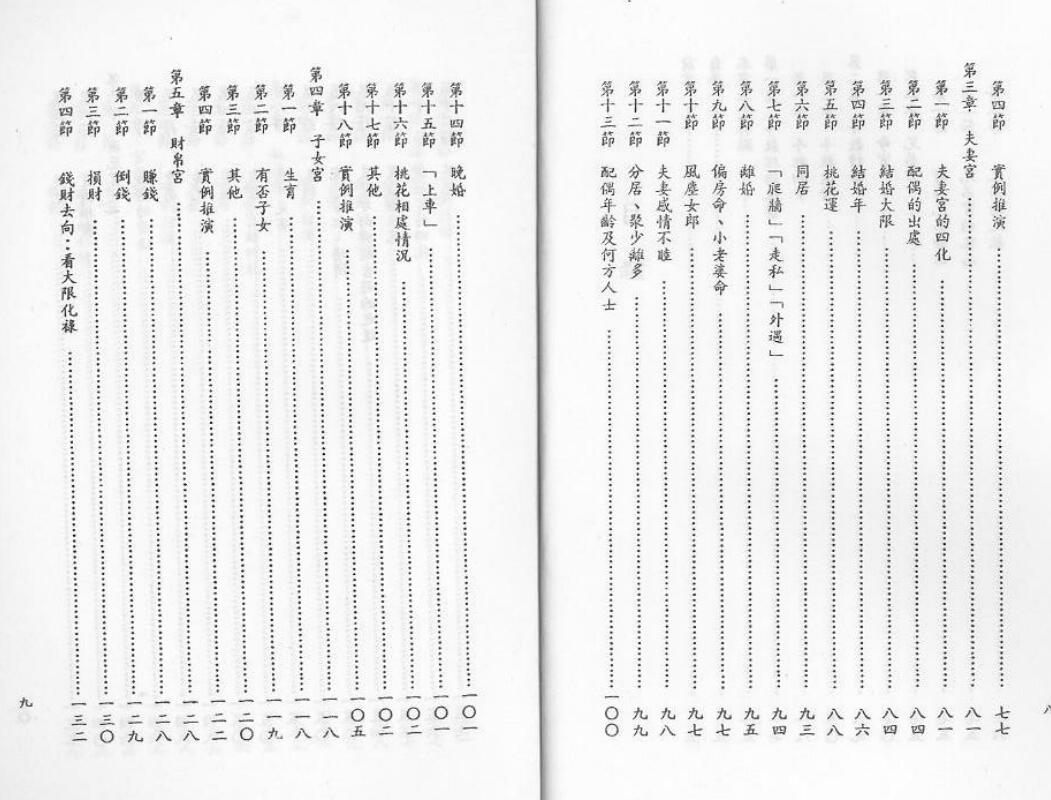 第四節 實例推演……七七
第三章 夫妻宮……八一
第一節 夫妻宮的四化……八一
第二節 配偶的出處……八四
第三節 結婚大限……八四
第四節 結婚年……八六
第五節 桃花運……八八
第六節 同居……九三
第七節 「爬牆」「走私」「外遇」……九四
第八節 離婚……九五
第九節 偏房命、小老婆命……九七
第十節 風塵女郎……九七
第十一節 夫妻感情不睦……九八
第十二節 分居、聚少離多……九九
第十三節 配偶年齡及何方人士……一〇〇
八
第十四節 晚婚……一〇一
第十五節 「上車」……一〇一
第十六節 桃花相處情況……一〇二
第十七節 其他……一〇二
第十八節 實例推演……一〇五
第四章 子女宮……一一八
第一節 生育……一一八
第二節 有否子女……一一九
第三節 其他……一二〇
第四節 實例推演……一二二
第五章 財帛宮……一二八
第一節 賺錢……一二八
第二節 倒錢……一二九
第三節 損財……一三〇
第四節 錢財去向:看大限化祿……一三二
九